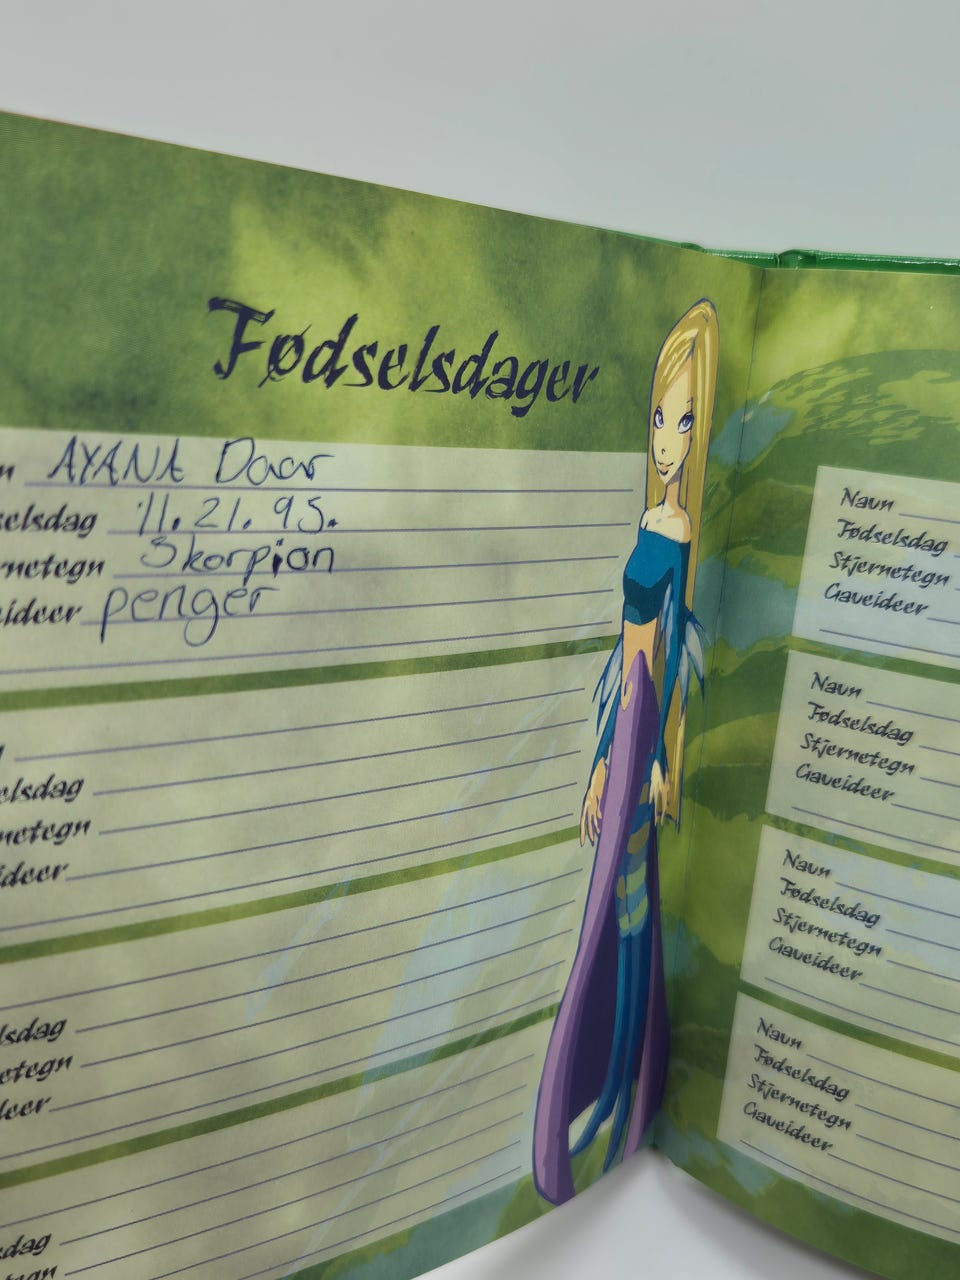 Fødselsdager
n AYANA Daar
selsdag 11.21.95.
rnetegn Skorpion
eideer penger
elsdag
netegn
ideer
lsdag
etegn
deer
sdag
egn
Navn
Fødselsdag
Stjernetegn
Gaveideer
Navn
Fødselsdag
Stjernetegn
Gaveideer
Navn
Fødselsdag
Stjernetegn
Gaveideer
Navn
Fødselsdag
Stjernetegn
Gaveideer